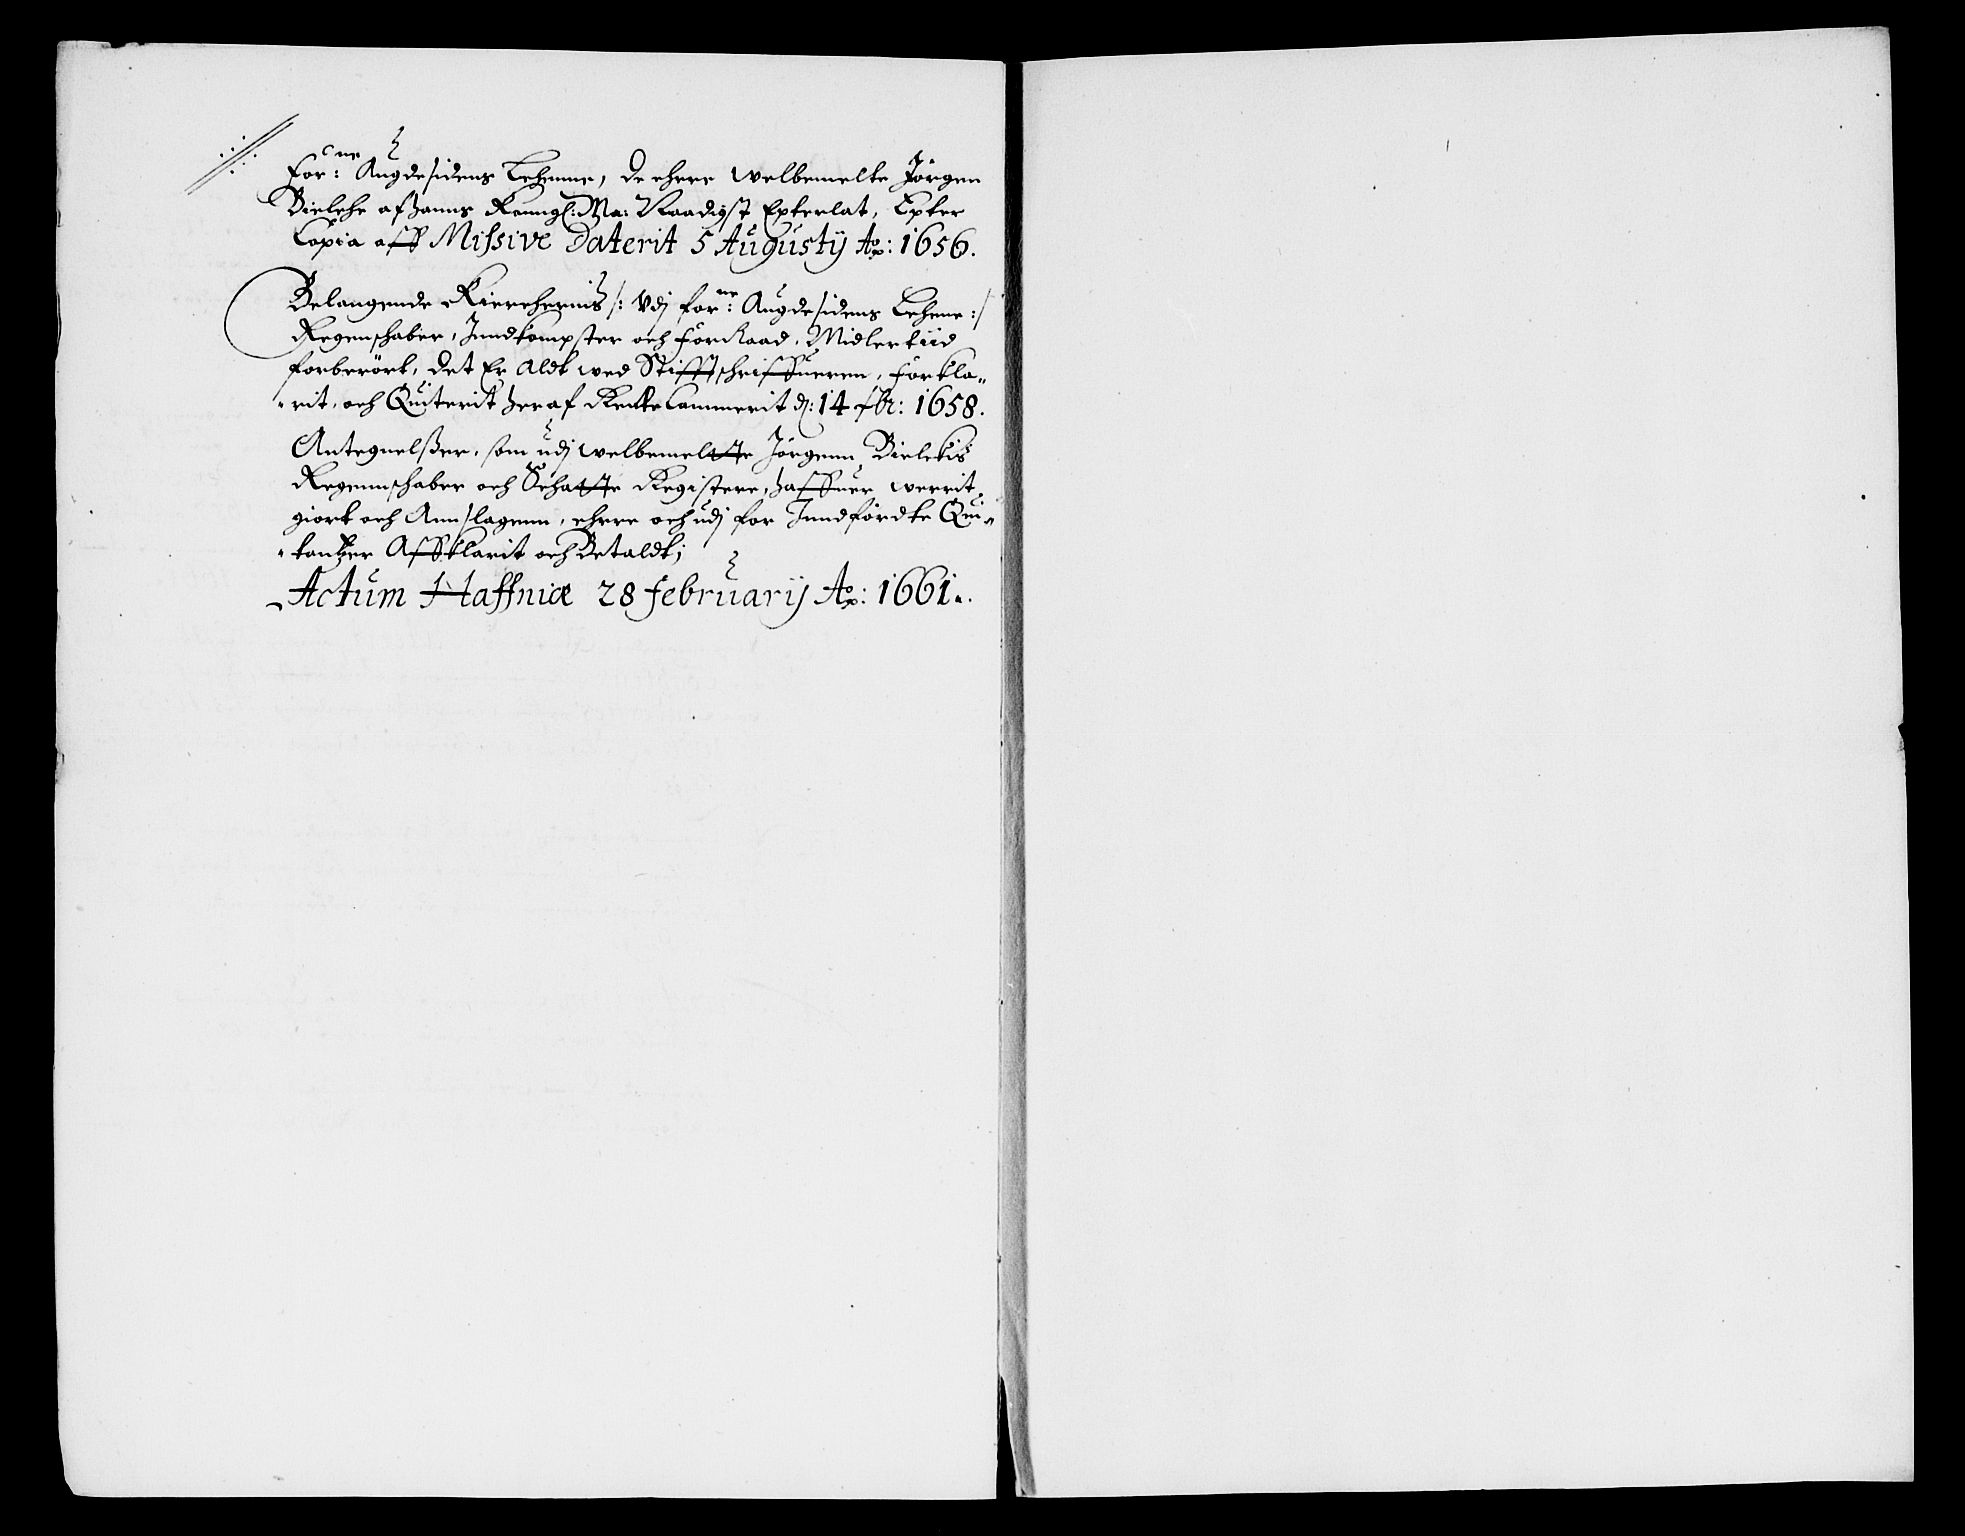 For:ne Augdesidens Lehenne, de ehre welbemelte Jörgen
Bielche af hanns Konngl: Ma: Naadigst Epterlat, Epter
Copia aff Missive Daterit 5 Augusty Ao: 1656.
Belangende Kierchernis /: Vdj for:ne Augdesidens Lehene :/
Regenschaber, Inndkompster och forRaad, Midlertiid
forberört, det Er Aldt wed Stifftschriffueren, forkla„
„rit, och Quiterit heraf RenteCammerit d: 14 fbr: 1658.
Antegnelßer, som udj welbemelte Jörgenn Bielckis
Regennschaber och Schatte Registere, haffuer werrit
giort och Annslagenn, ehre och udj for Inndfördte Qui„
„tantzer Affklarit och Betaldt;
Actum Haffniæ 28 februarij Ao: 1661.